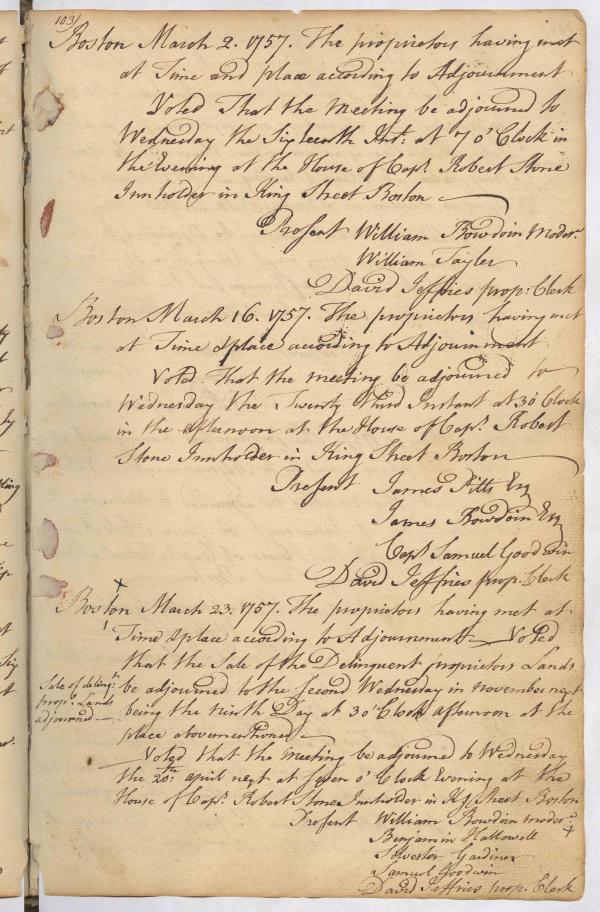 103/
Boston March 2. 1757. The proprietors having met
at Time and place according to Adjournment
Voted That the meeting be adjourned to
Wednesday the Sixteenth Inst: at 7 o'Clock in
the Evening at the House of Capt. Robert Stone
Innholder in King Street Boston
Present William Bowdoin moder.
William Tayler
David Jeffries prop: Clerk
Boston March 16. 1757. The proprietors having met
at Time & place according to Adjournment
Voted that the meeting be adjourned to
Wednesday the Twenty third Instant at 3 o'Clock
in the afternoon at the House of Capt. Robert
Stone Innholder in King Street Boston
Present James Pitts Esq
James Bowdoin Esq
Capt Samuel Goodwin
David Jeffries prop. Clerk
Boston March 23. 1757. The proprietors having met at
Time & place according to Adjournment Voted
that the Sale of the Delinquent proprietors Lands
Sale of delinqt.
prop. Lands
adjourned
be adjourned to the second Wednesday in november next
being the ninth Day at 3 o'Clock afternoon at the
place abovementioned
Voted that the meeting be adjourned to Wednesday
the 20th. april next at seven o'Clock Evening at the
House of Capt. Robert Stone Innholder in Kg Street Boston
Present William Bowdoin moder.
Benjamin Hallowell
Silvester Gardiner
Samuel Goodwin
David Jeffries prop. Clerk